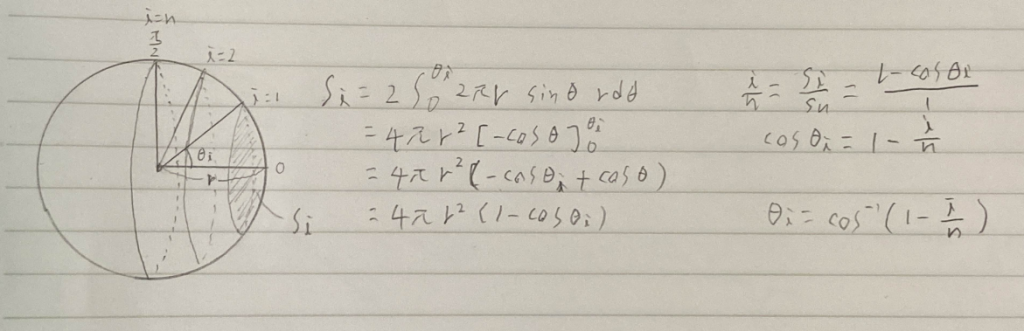 i=n
π/2
i=2
i=1
θi
r
0
Si
Si = 2 ∫₀^θi 2πr sinθ rdθ
= 4πr² [-cosθ]₀^θi
= 4πr² (-cosθi + cosθ)
= 4πr² (1-cosθi)
i/n = Si/Sn = (1-cosθi)/1
cosθi = 1 - i/n
θi = cos⁻¹(1 - i/n)